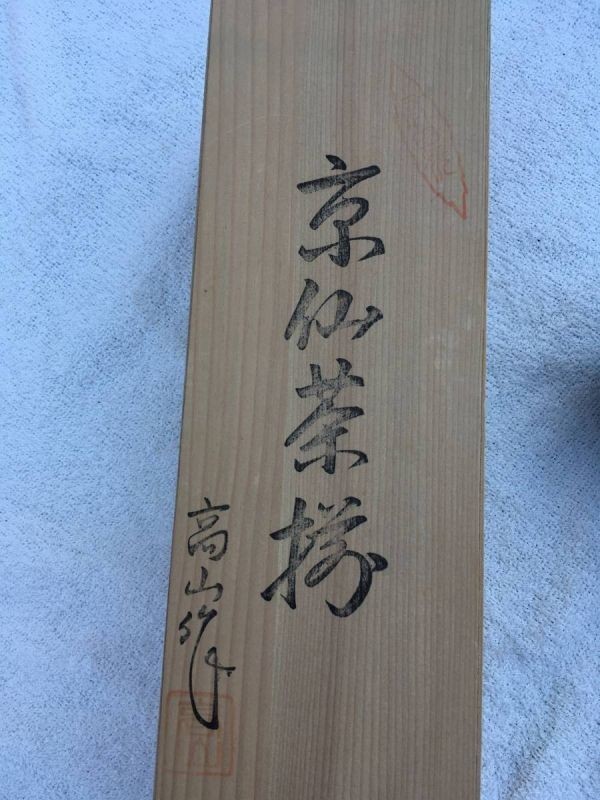 京仙茶揃
高山作